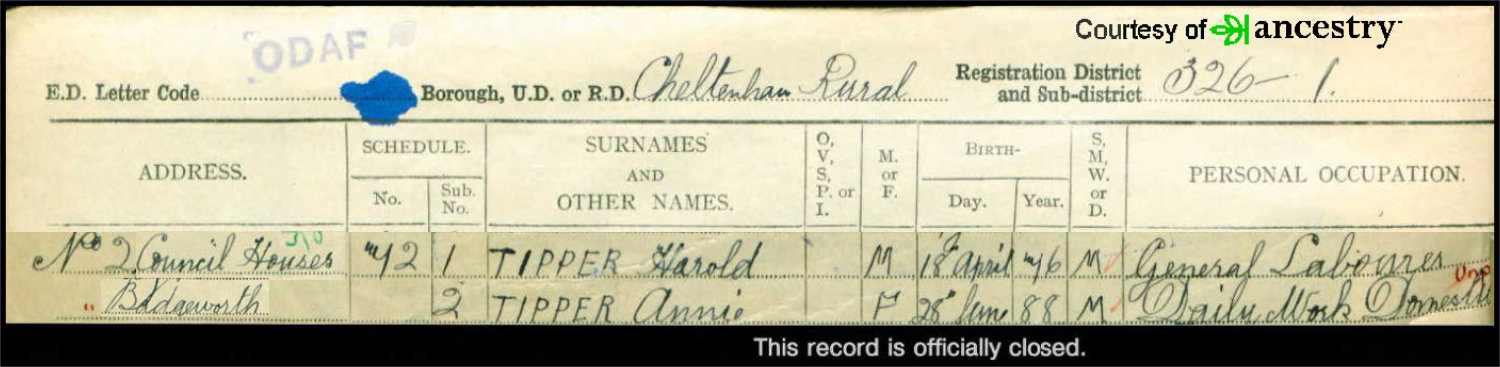 Courtesy of ancestry
ODAF
E.D. Letter Code Borough, U.D. or R.D. Cheltenham Rural Registration District and Sub-district 326 – 1.
ADDRESS. SCHEDULE. No. Sub. No. SURNAMES AND OTHER NAMES. O, V, S, P. or I. M. or F. BIRTH- Day. Year. S, M, W. or D. PERSONAL OCCUPATION.
310
No 2 Council Houses 12 1 TIPPER Harold M 18 April 76 M General Labourer
" Badgeworth 2 TIPPER Annie F 28 June 88 M Daily Work Domestic
This record is officially closed.